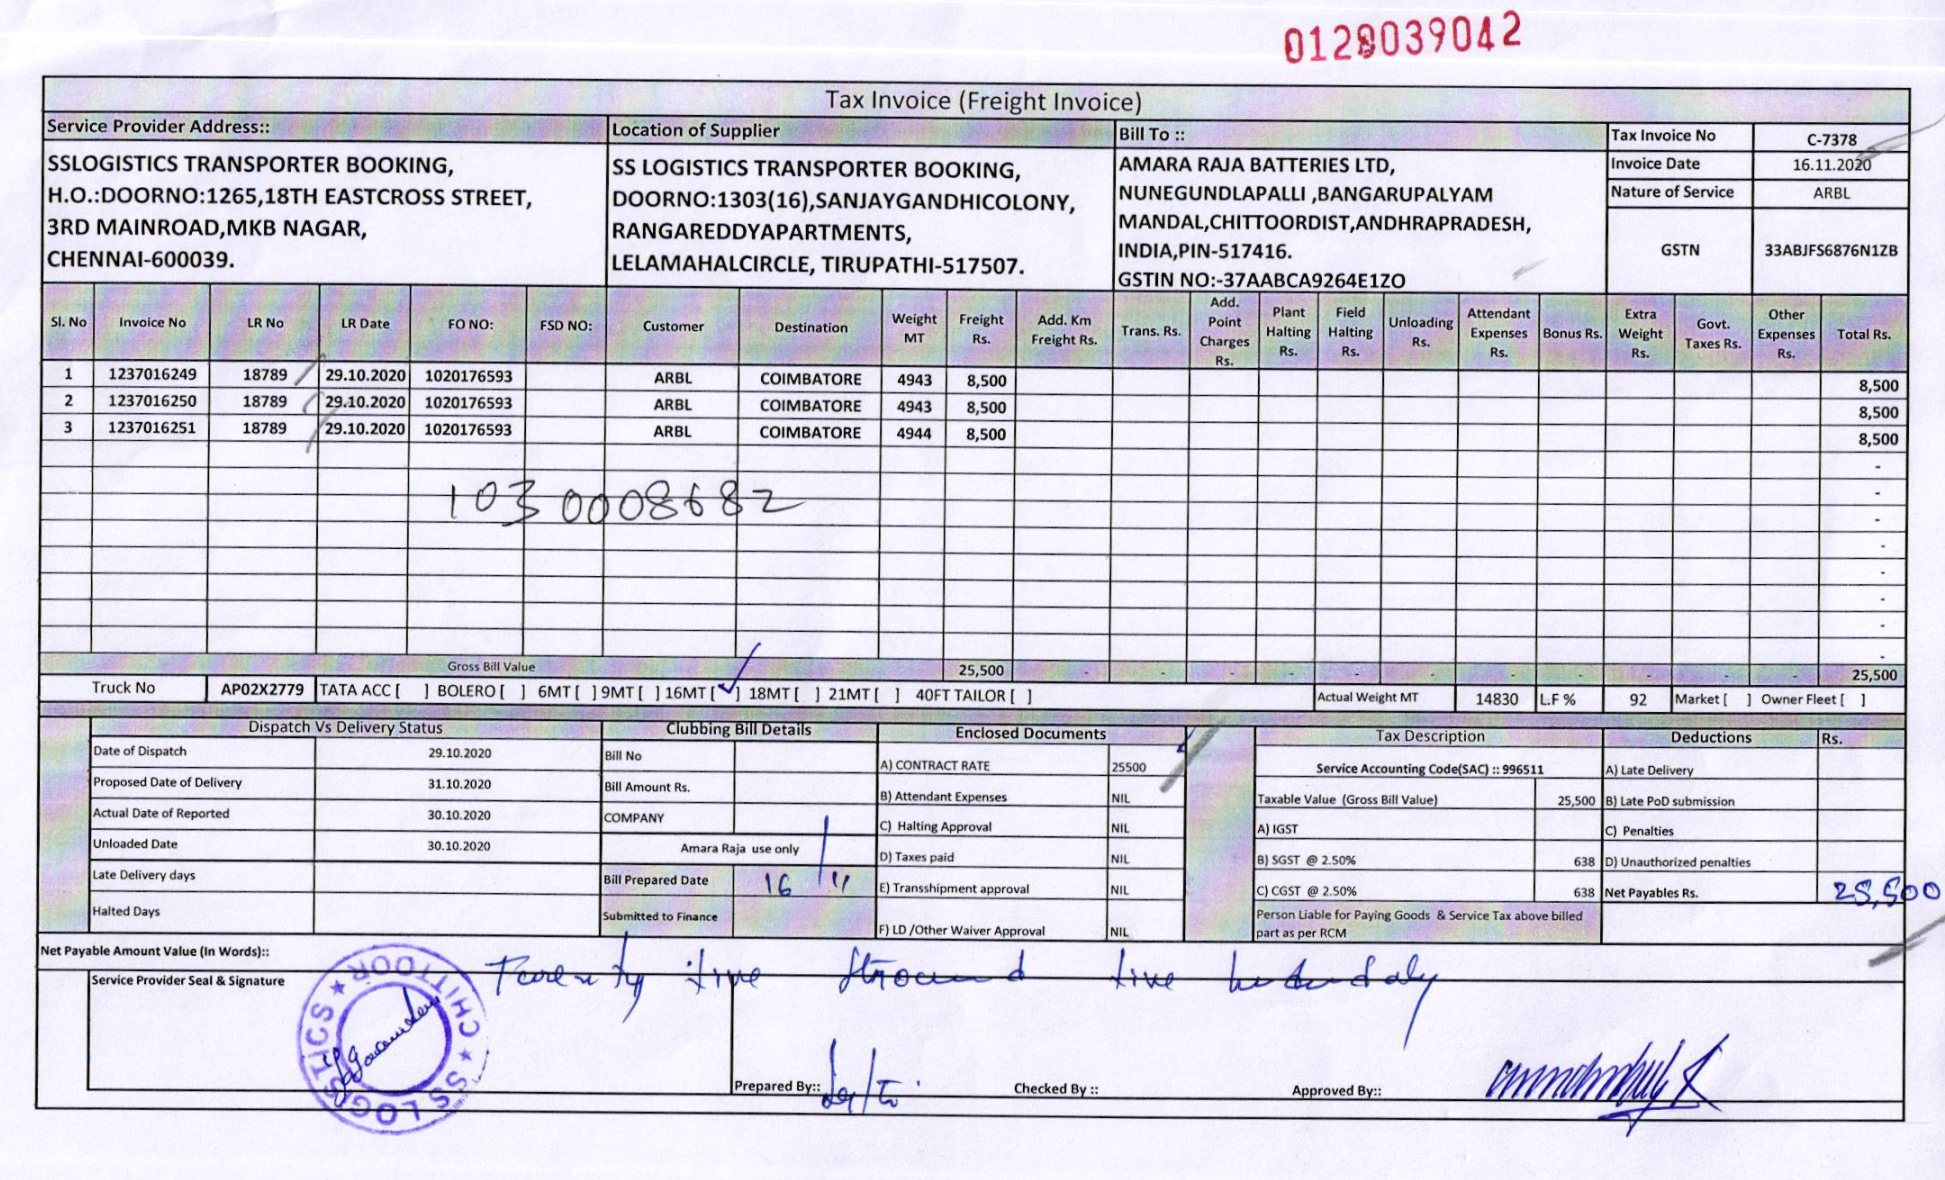 0128039042
Tax Invoice (Freight Invoice)
Service Provider Address::
SSLOGISTICS TRANSPORTER BOOKING,
H.O.:DOORNO:1265,18TH EASTCROSS STREET,
3RD MAINROAD,MKB NAGAR,
CHENNAI-600039.
Location of Supplier
SS LOGISTICS TRANSPORTER BOOKING,
DOORNO:1303(16),SANJAYGANDHICOLONY,
RANGAREDDYAPARTMENTS,
LELAMAHALCIRCLE, TIRUPATHI-517507.
Bill To ::
AMARA RAJA BATTERIES LTD,
NUNEGUNDLAPALLI ,BANGARUPALYAM
MANDAL,CHITTOORDIST,ANDHRAPRADESH,
INDIA,PIN-517416.
GSTIN NO:-37AABCA9264E1ZO
Tax Invoice No C-7378
Invoice Date 16.11.2020
Nature of Service ARBL
GSTN 33ABJFS6876N1ZB
Sl. No Invoice No LR No LR Date FO NO: FSD NO: Customer Destination Weight MT Freight Rs. Add. Km Freight Rs. Trans. Rs. Add. Point Charges Rs. Plant Halting Rs. Field Halting Rs. Unloading Rs. Attendant Expenses Rs. Bonus Rs. Extra Weight Rs. Govt. Taxes Rs. Other Expenses Rs. Total Rs.
1 1237016249 18789 29.10.2020 1020176593 ARBL COIMBATORE 4943 8,500 8,500
2 1237016250 18789 29.10.2020 1020176593 ARBL COIMBATORE 4943 8,500 8,500
3 1237016251 18789 29.10.2020 1020176593 ARBL COIMBATORE 4944 8,500 8,500
1030008682
Gross Bill Value 25,500 - - - - - - - - - - - 25,500
Truck No AP02X2779 TATA ACC [ ] BOLERO [ ] 6MT [ ] 9MT [ ] 16MT [✓] 18MT [ ] 21MT [ ] 40FT TAILOR [ ] Actual Weight MT 14830 L.F % 92 Market [ ] Owner Fleet [ ]
Dispatch Vs Delivery Status
Date of Dispatch 29.10.2020
Proposed Date of Delivery 31.10.2020
Actual Date of Reported 30.10.2020
Unloaded Date 30.10.2020
Late Delivery days
Halted Days
Clubbing Bill Details
Bill No
Bill Amount Rs.
COMPANY
Amara Raja use only
Bill Prepared Date 16/11
Submitted to Finance
Enclosed Documents
A) CONTRACT RATE 25500
B) Attendant Expenses NIL
C) Halting Approval NIL
D) Taxes paid NIL
E) Transshipment approval NIL
F) LD /Other Waiver Approval NIL
Tax Description
Service Accounting Code(SAC) :: 996511
Taxable Value (Gross Bill Value) 25,500
A) IGST
B) SGST @ 2.50% 638
C) CGST @ 2.50% 638
Person Liable for Paying Goods & Service Tax above billed
part as per RCM
Deductions Rs.
A) Late Delivery
B) Late PoD submission
C) Penalties
D) Unauthorized penalties
Net Payables Rs. 25,500
Net Payable Amount Value (In Words)::
Service Provider Seal & Signature
SS LOGISTICS ★ CHITTOOR ★
Prepared By:: Checked By :: Approved By::